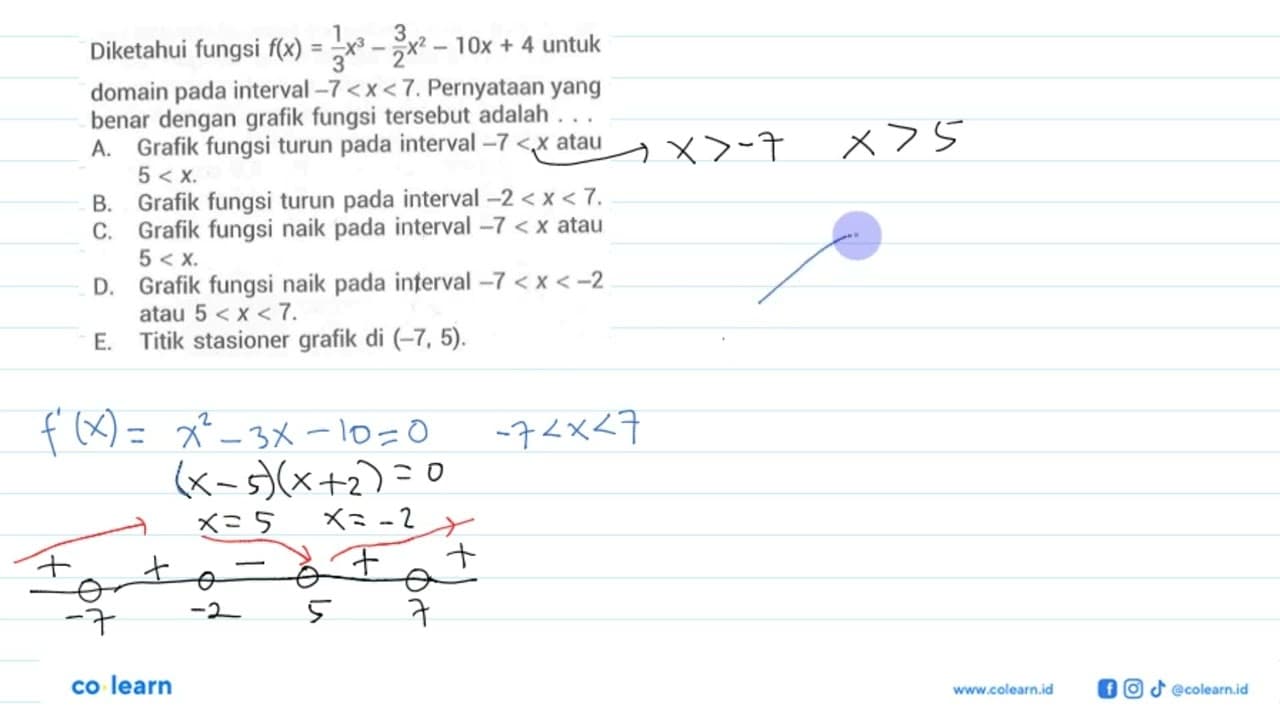 Diketahui fungsi f(x) = 1/3 x³ − 3/2 x² − 10x + 4 untuk
domain pada interval −7 < x < 7. Pernyataan yang
benar dengan grafik fungsi tersebut adalah . . .
A. Grafik fungsi turun pada interval −7 < x atau
5 < x.
B. Grafik fungsi turun pada interval −2 < x < 7.
C. Grafik fungsi naik pada interval −7 < x atau
5 < x.
D. Grafik fungsi naik pada interval −7 < x < −2
atau 5 < x < 7.
E. Titik stasioner grafik di (−7, 5).
x > -7 x > 5
f'(x) = x² - 3x - 10 = 0 -7 < x < 7
(x - 5)(x + 2) = 0
x = 5 x = -2
+ + - + +
-7 -2 5 7
co learn
www.colearn.id @colearn.id